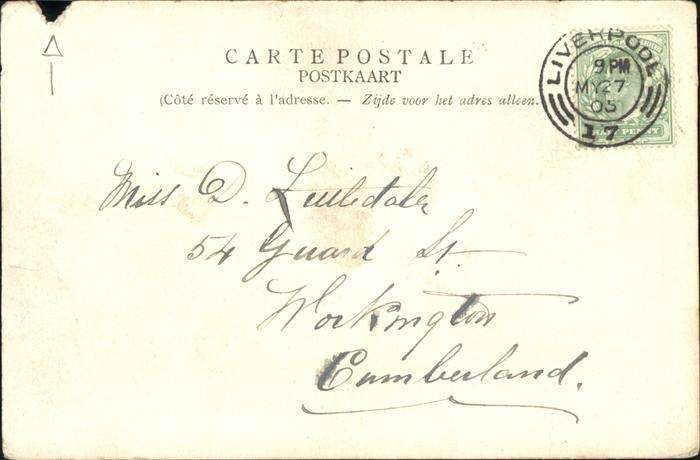 CARTE POSTALE
POSTKAART
(Côté réservé à l'adresse. — Zijde voor het adres alleen.
LIVERPOOL
9 PM
MY 27
05
17
HALF PENNY
Miss D.
54 Guard St.
Workington
Cumberland.